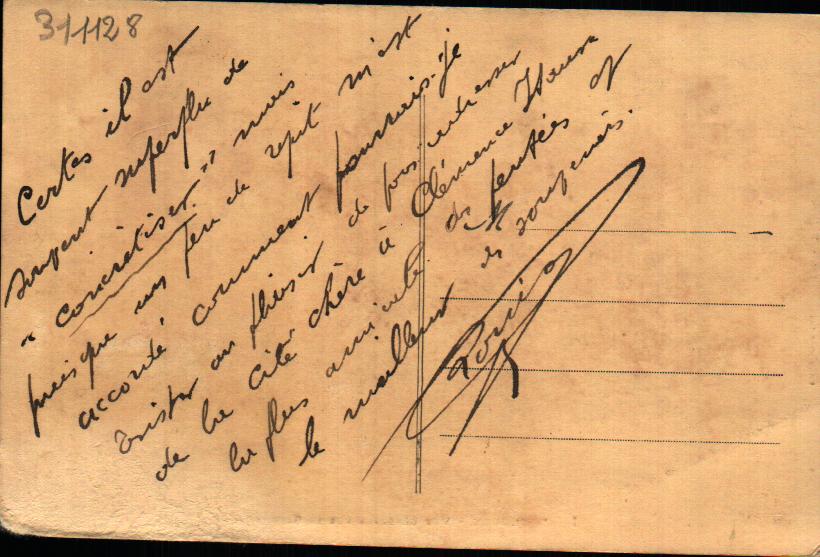 311128
Certes il est
souvent superflu de
" concrétiser " mais
puisque un peu de répit m'est
accordé comment pourrais-je
résister au plaisir de vous adresser
de la cité chère à Clémence Isaure
la plus amicale des pensées et
le meilleur des souvenirs.
Louis